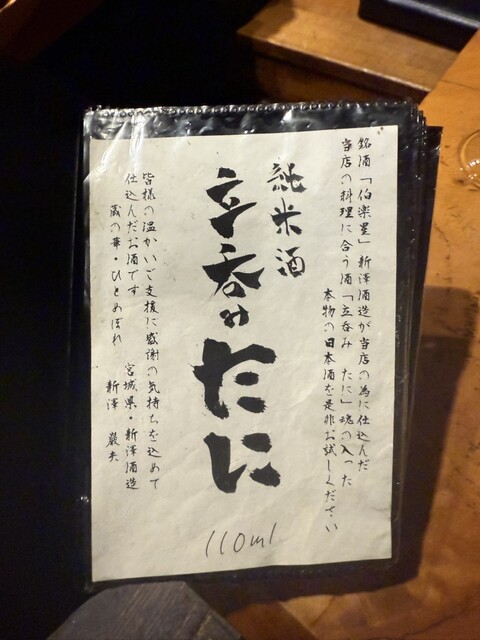 銘酒「伯楽星」新澤酒造が当店の為に仕込んだ
当店の料理に合う酒「立呑み たに」魂の入った
本物の日本酒を是非お試しください
純米酒
立呑み
たに
皆様の温かいご支援に感謝の気持ちを込めて
仕込んだお酒です
蔵の華・ひとめぼれ
宮城県・新澤酒造
新澤 巖夫
110ml